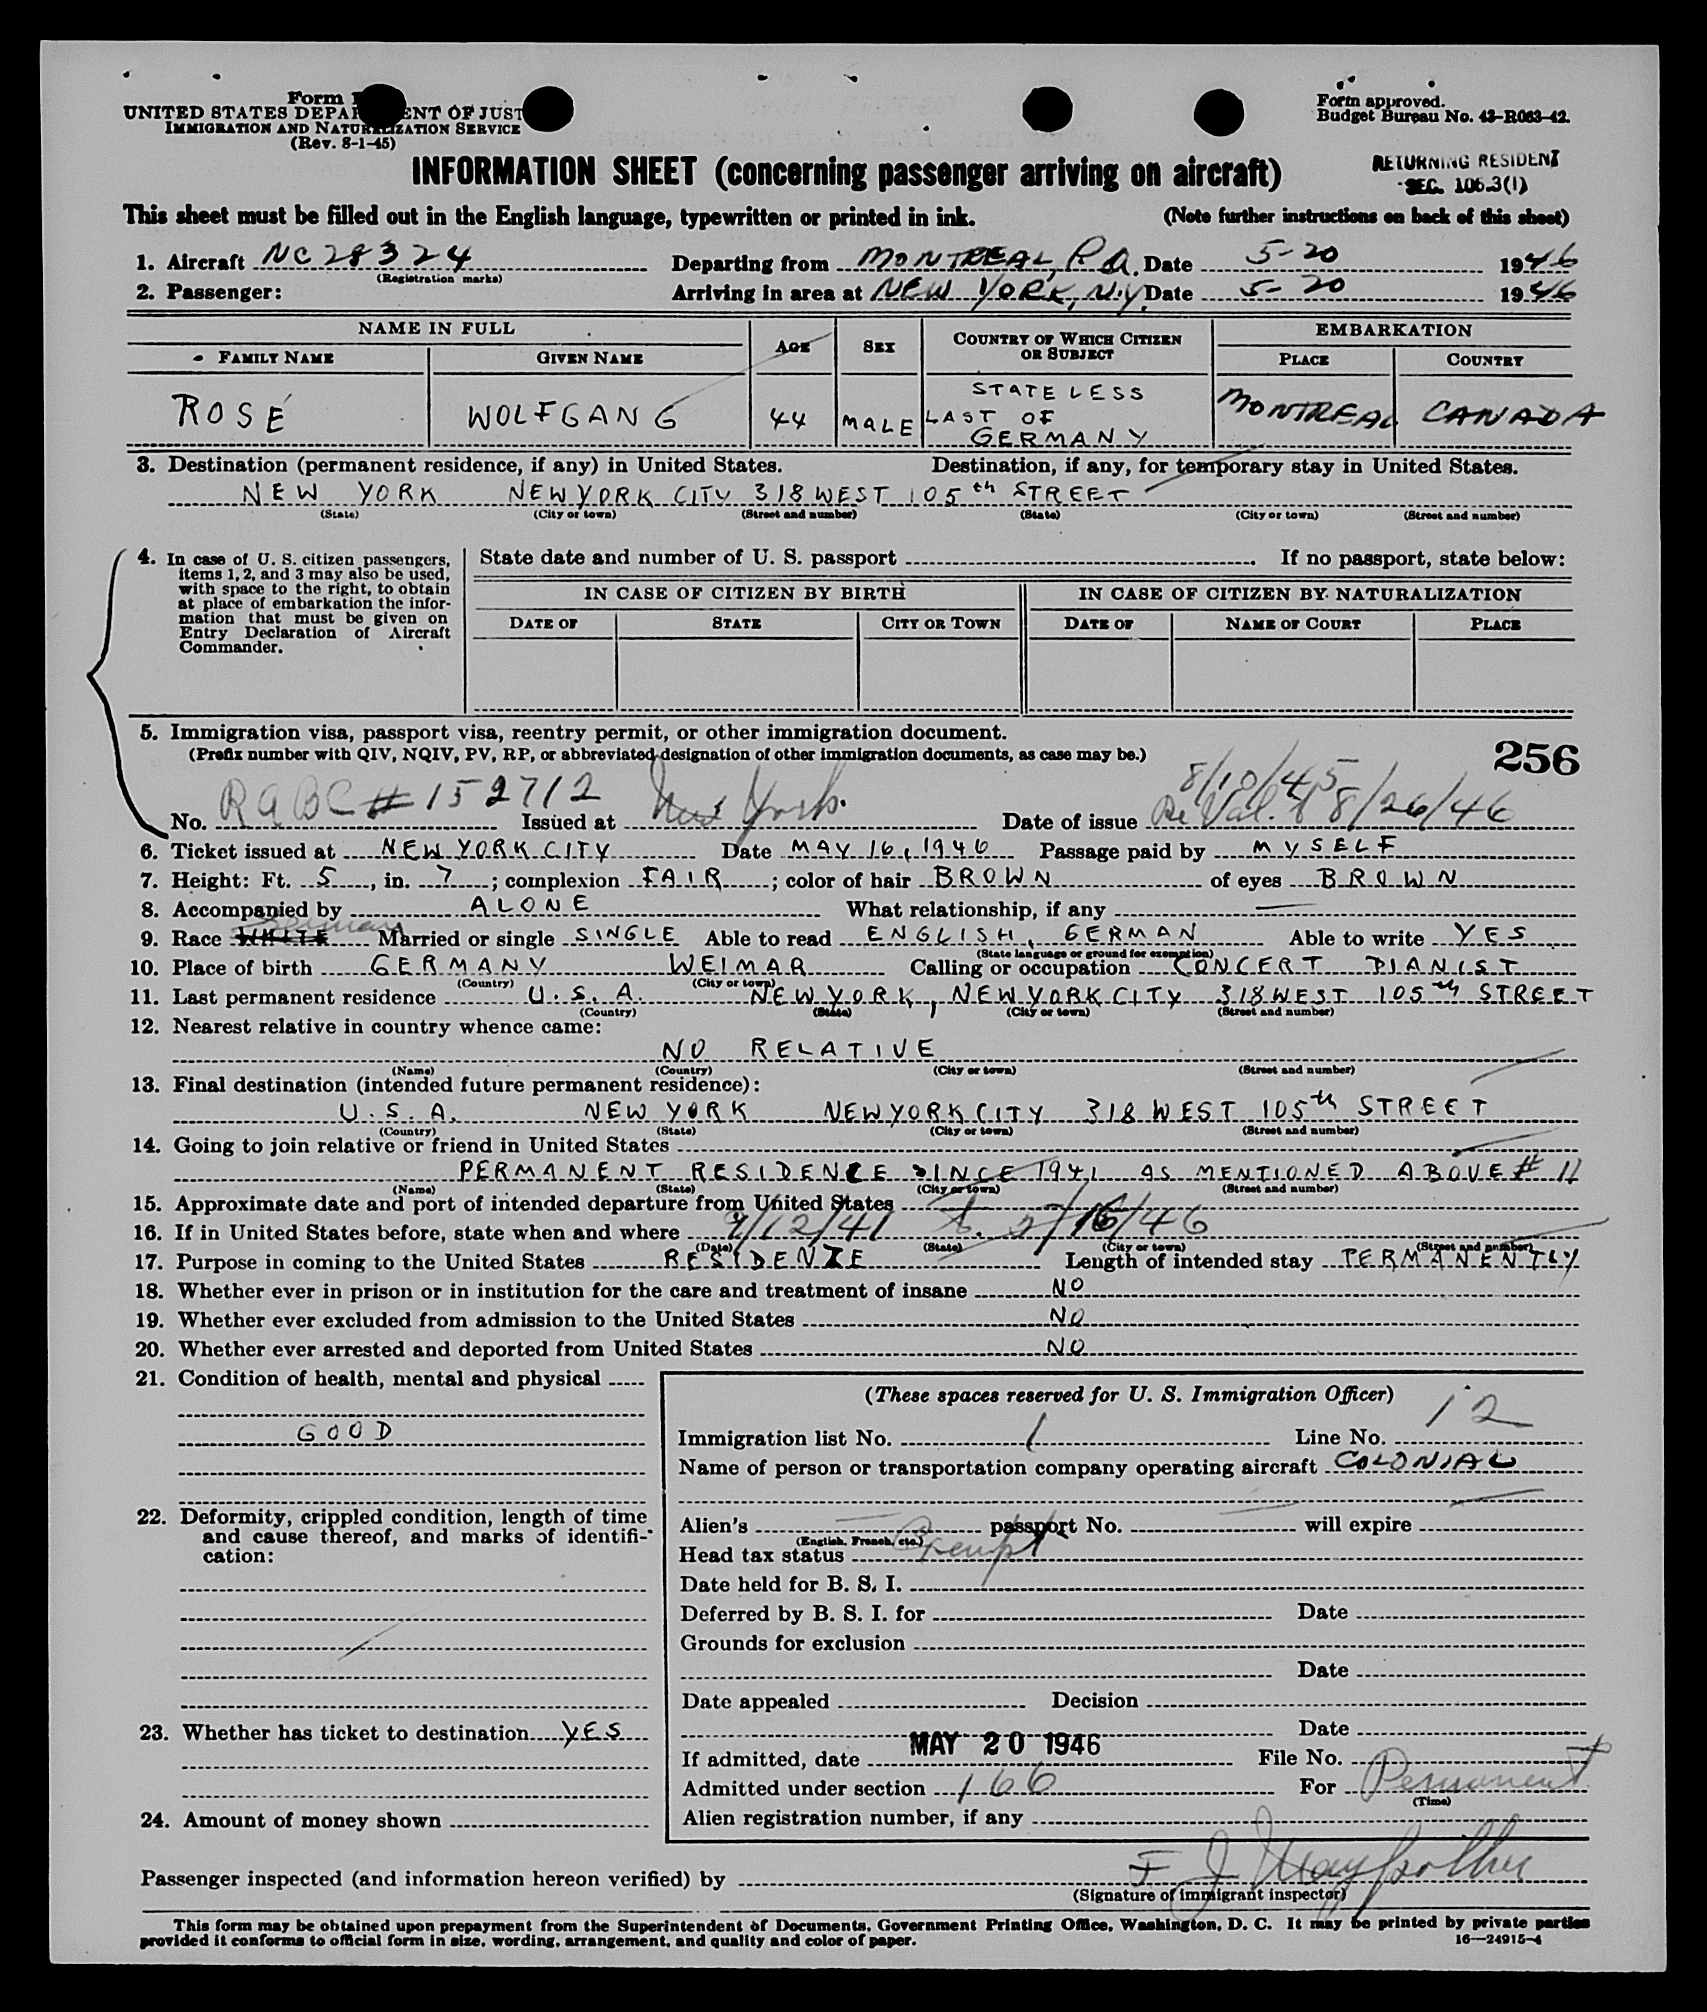 Form
UNITED STATES DEPARTMENT OF JUST
IMMIGRATION AND NATURALIZATION SERVICE
(Rev. 8-1-45)
Form approved.
Budget Bureau No. 43-R063-42.
INFORMATION SHEET (concerning passenger arriving on aircraft)
RETURNING RESIDENT
SEC. 106.3(1)
This sheet must be filled out in the English language, typewritten or printed in ink. (Note further instructions on back of this sheet)
1. Aircraft NC28324 Departing from MONTREAL, P.Q. Date 5-20 1946
(Registration marks)
2. Passenger: Arriving in area at NEW YORK, N.Y. Date 5-20 1946
NAME IN FULL AGE SEX COUNTRY OF WHICH CITIZEN OR SUBJECT EMBARKATION
FAMILY NAME GIVEN NAME PLACE COUNTRY
ROSÉ WOLFGANG 44 MALE STATELESS LAST OF GERMANY MONTREAL CANADA
3. Destination (permanent residence, if any) in United States. Destination, if any, for temporary stay in United States.
NEW YORK NEW YORK CITY 318 WEST 105th STREET
(State) (City or town) (Street and number) (State) (City or town) (Street and number)
4. In case of U. S. citizen passengers, items 1, 2, and 3 may also be used, with space to the right, to obtain at place of embarkation the information that must be given on Entry Declaration of Aircraft Commander.
State date and number of U. S. passport If no passport, state below:
IN CASE OF CITIZEN BY BIRTH IN CASE OF CITIZEN BY NATURALIZATION
DATE OF STATE CITY OR TOWN DATE OF NAME OF COURT PLACE
5. Immigration visa, passport visa, reentry permit, or other immigration document.
(Prefix number with QIV, NQIV, PV, RP, or abbreviated designation of other immigration documents, as case may be.) 256
8/10/45
No. RABC # 152712 Issued at New York Date of issue Re Val. 8/26/46
6. Ticket issued at NEW YORK CITY Date MAY 16, 1946 Passage paid by MYSELF
7. Height: Ft. 5, in. 7; complexion FAIR; color of hair BROWN of eyes BROWN
8. Accompanied by ALONE What relationship, if any —
9. Race WHITE German Married or single SINGLE Able to read ENGLISH, GERMAN Able to write YES
(State language or ground for exemption)
10. Place of birth GERMANY WEIMAR Calling or occupation CONCERT PIANIST
(Country) (City or town)
11. Last permanent residence U.S.A. NEW YORK, NEW YORK CITY 318 WEST 105th STREET
(Country) (State) (City or town) (Street and number)
12. Nearest relative in country whence came:
NO RELATIVE
(Name) (Country) (City or town) (Street and number)
13. Final destination (intended future permanent residence):
U.S.A. NEW YORK NEW YORK CITY 318 WEST 105th STREET
(Country) (State) (City or town) (Street and number)
14. Going to join relative or friend in United States
PERMANENT RESIDENCE SINCE 1941 AS MENTIONED ABOVE # 11
(Name) (State) (City or town) (Street and number)
15. Approximate date and port of intended departure from United States
16. If in United States before, state when and where 9/12/41 to 5/16/46
(Date) (State) (City or town) (Street and number)
17. Purpose in coming to the United States RESIDENZE Length of intended stay PERMANENTLY
18. Whether ever in prison or in institution for the care and treatment of insane NO
19. Whether ever excluded from admission to the United States NO
20. Whether ever arrested and deported from United States NO
21. Condition of health, mental and physical
GOOD
22. Deformity, crippled condition, length of time and cause thereof, and marks of identification:
23. Whether has ticket to destination YES
24. Amount of money shown
(These spaces reserved for U. S. Immigration Officer)
Immigration list No. 1 Line No. 12
Name of person or transportation company operating aircraft COLONIAL
Alien's passport No. will expire
(English, French, etc.)
Head tax status Exempt
Date held for B. S. I.
Deferred by B. S. I. for Date
Grounds for exclusion
Date
Date appealed Decision
Date
If admitted, date MAY 20 1946 File No.
Admitted under section 166 For Permanent
(Time)
Alien registration number, if any
Passenger inspected (and information hereon verified) by F J
(Signature of immigrant inspector)
This form may be obtained upon prepayment from the Superintendent of Documents, Government Printing Office, Washington, D. C. It may be printed by private parties
provided it conforms to official form in size, wording, arrangement, and quality and color of paper. 16—24915-4